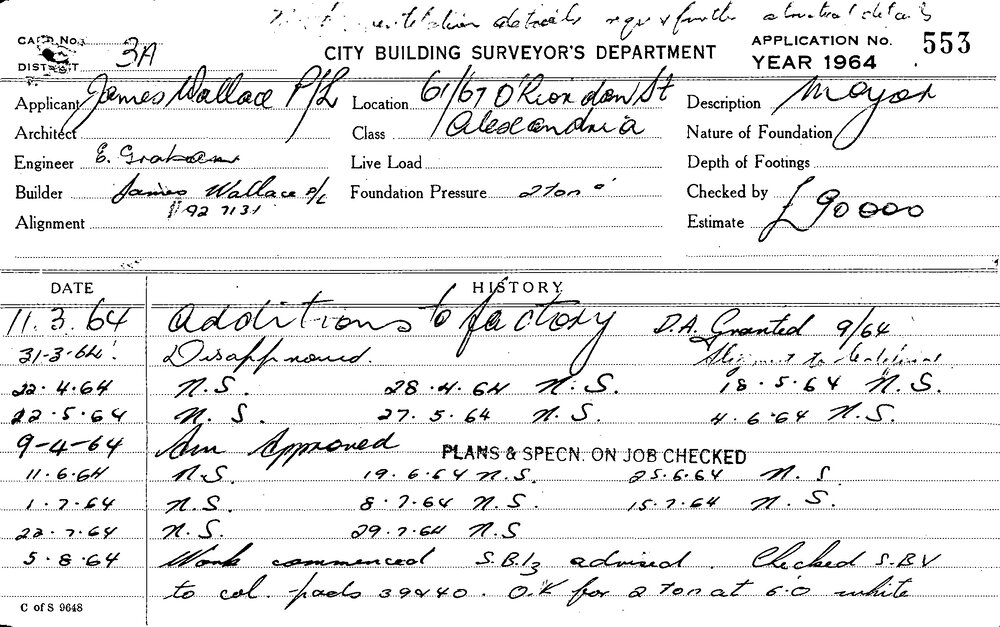 ventilation details req. & further structural details
CARD No. 3A CITY BUILDING SURVEYOR'S DEPARTMENT APPLICATION No. 553
DISTRICT YEAR 1964
Applicant James Wallace P/L Location 61/67 O'Riordan St Description Mayor
Architect Class Alexandria Nature of Foundation
Engineer E. Graham Live Load Depth of Footings
Builder James Wallace P/L Foundation Pressure 2 ton Checked by
92 7131
Alignment Estimate £90000
DATE HISTORY
11.3.64 Additions to factory D.A. Granted 9/64
31-3-64 Disapproved. to
22.4.64 N.S. 28.4.64 N.S. 18.5.64 N.S.
22.5.64 N.S. 27.5.64 N.S. 4.6.64 N.S.
9-4-64 Am Approved PLANS & SPECN. ON JOB CHECKED
11.6.64 N.S. 19.6.64 N.S. 25.6.64 N.S.
1.7.64 N.S. 8.7.64 N.S. 15.7.64 N.S.
22.7.64 N.S. 29.7.64 N.S
5.8.64 Work commenced S.B. advised. Checked S.B.V
to col. pads 39 & 40. O.K for 2 ton at 6.0 white
C of S 9648